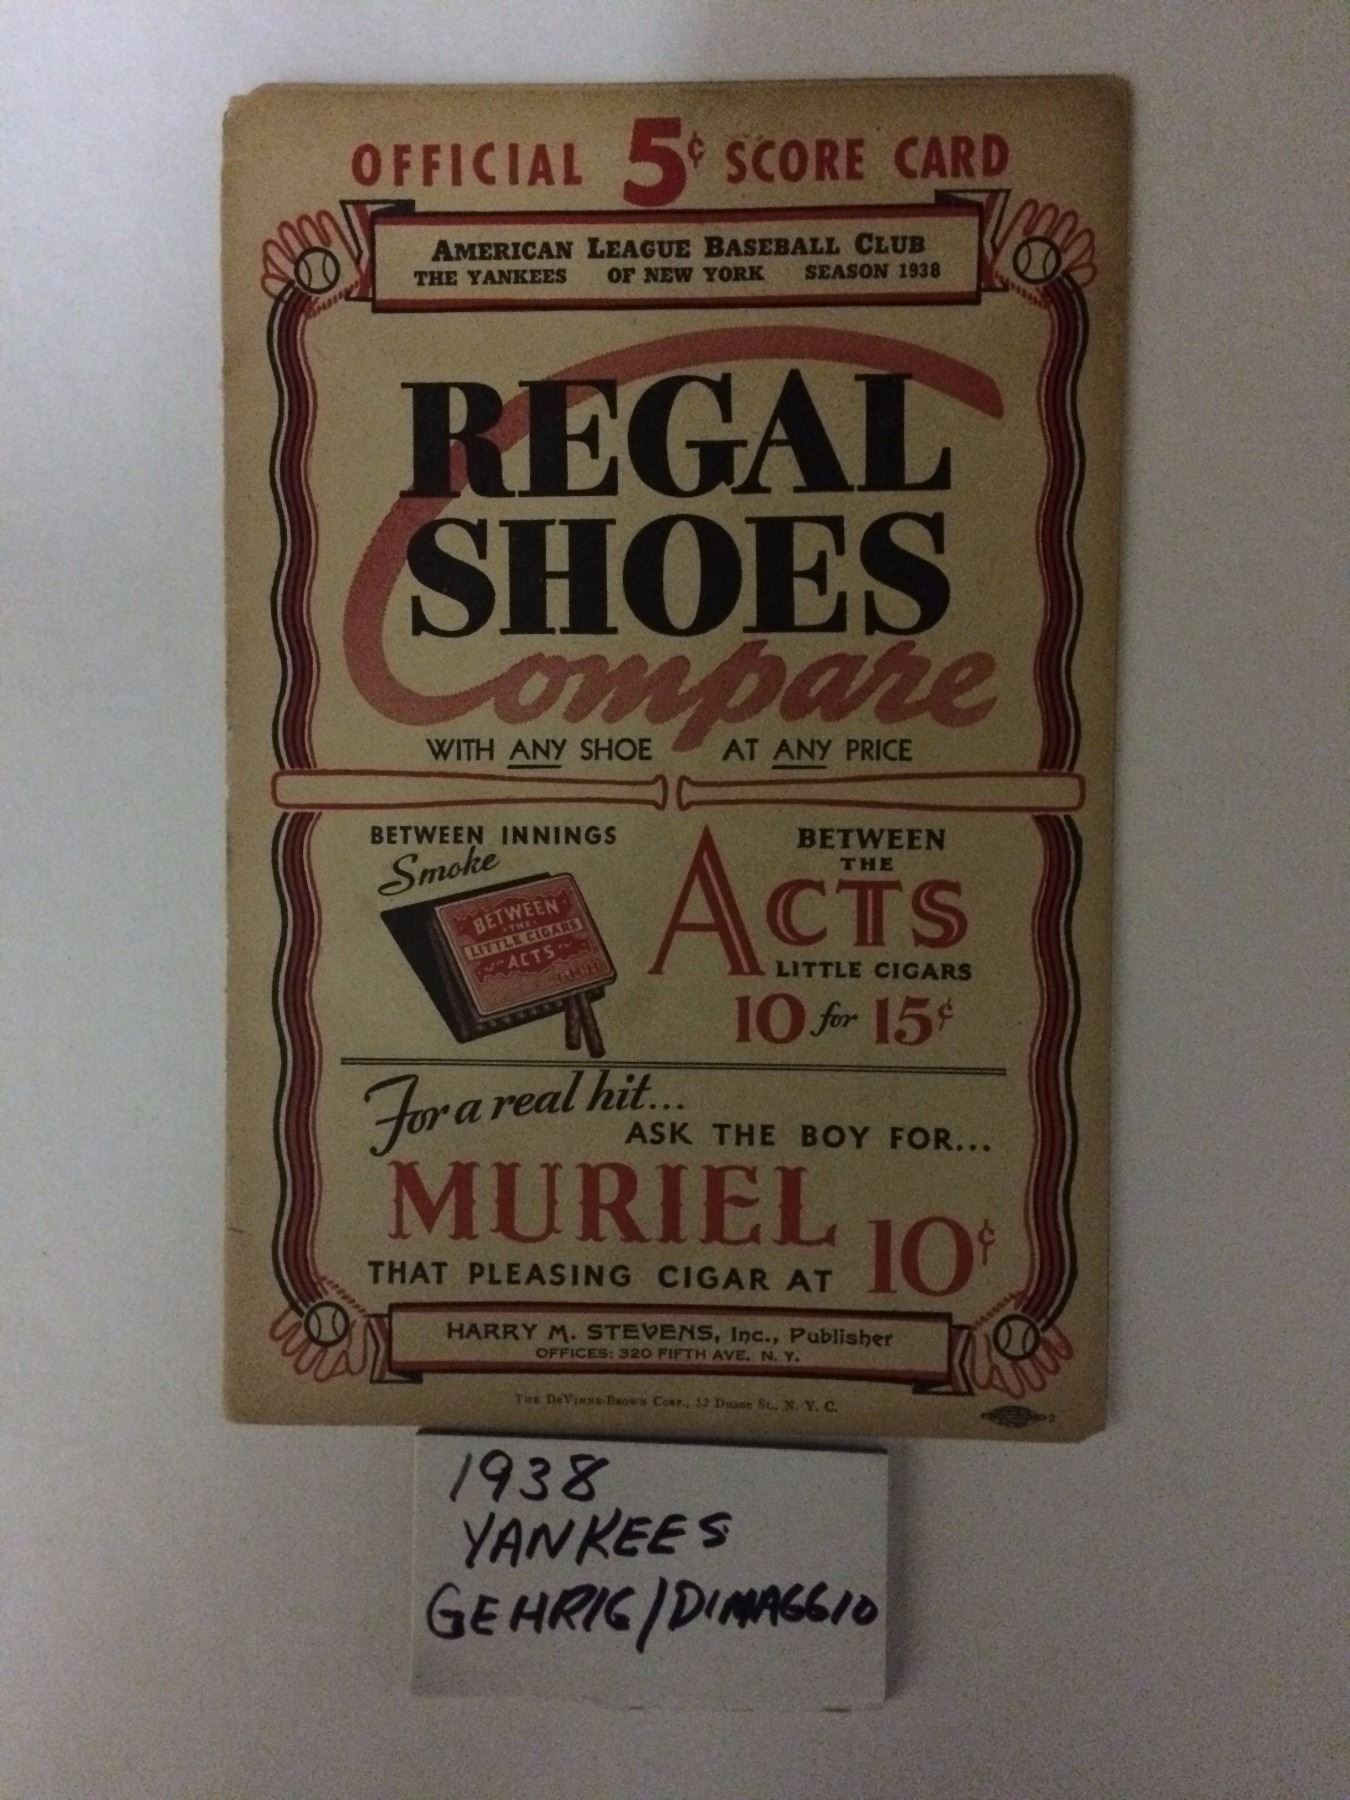 OFFICIAL 5¢ SCORE CARD
AMERICAN LEAGUE BASEBALL CLUB
THE YANKEES OF NEW YORK SEASON 1938
REGAL
SHOES
Compare
WITH ANY SHOE AT ANY PRICE
BETWEEN INNINGS
Smoke
BETWEEN
THE
LITTLE CIGARS
ACTS
BETWEEN
THE
ACTS
LITTLE CIGARS
10 for 15¢
For a real hit...
ASK THE BOY FOR...
MURIEL
THAT PLEASING CIGAR AT 10¢
HARRY M. STEVENS, Inc., Publisher
OFFICES: 320 FIFTH AVE. N. Y.
THE DEVINNE-BROWN CORP., 52 Duane St., N. Y. C.
1938
YANKEES
GEHRIG/DIMAGGIO